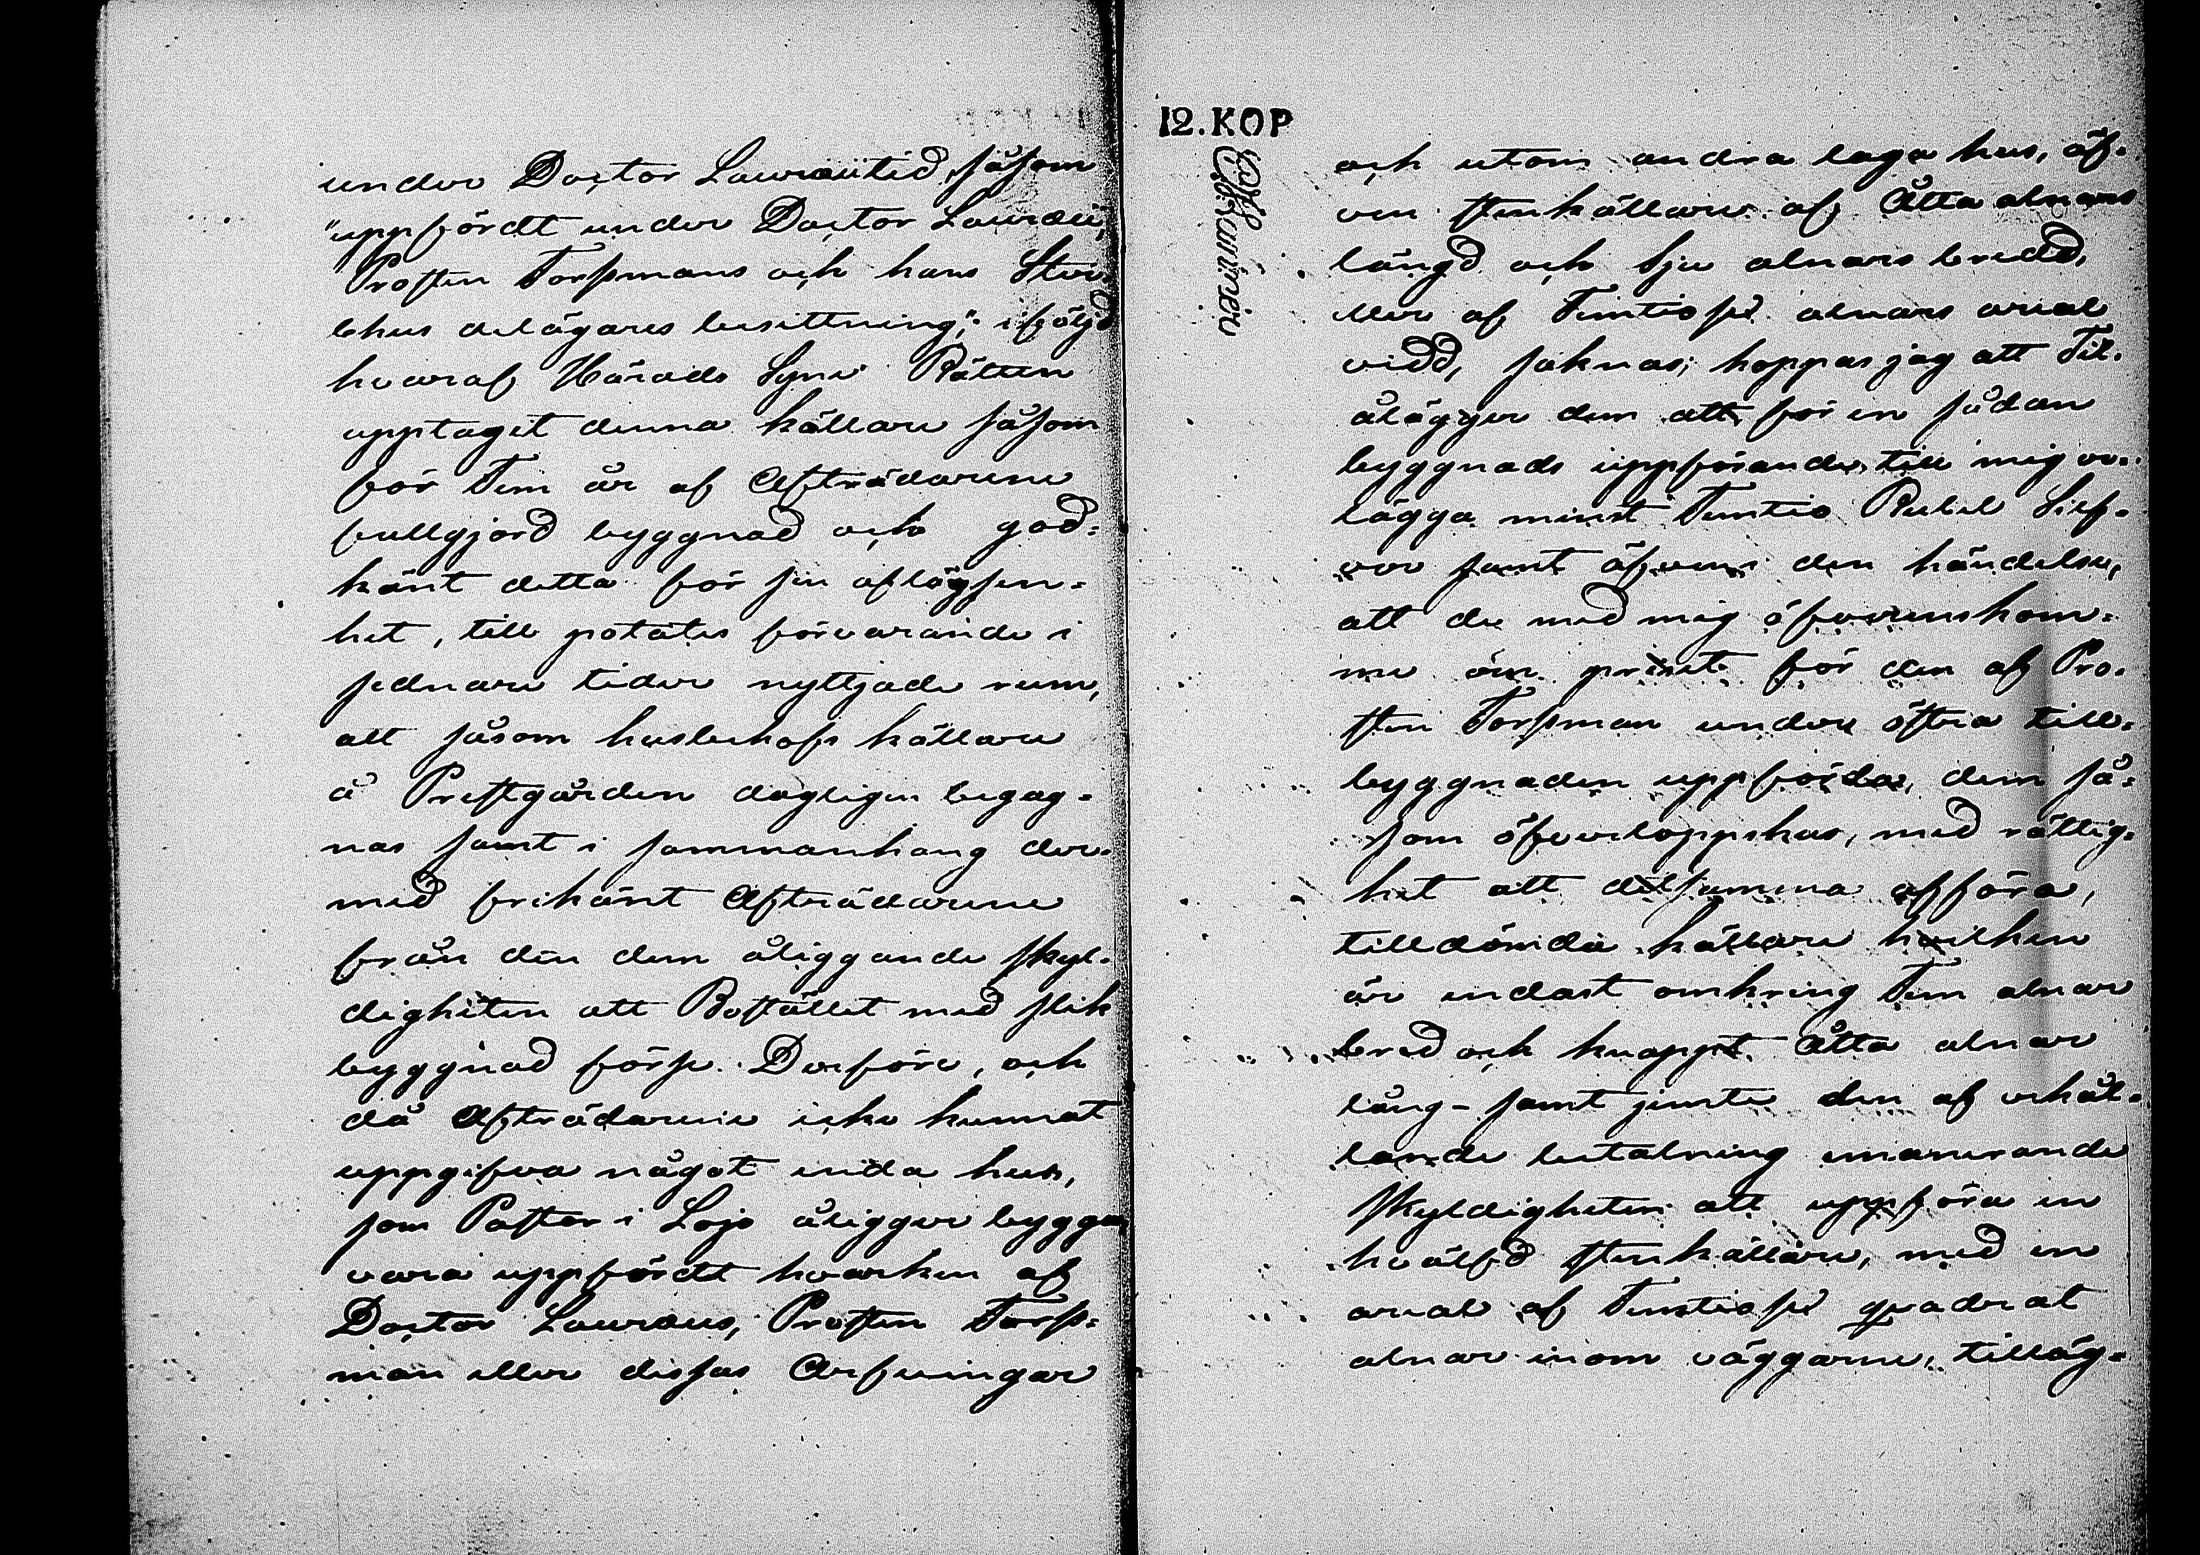 under Doctor Lauræi tid, såsom
"uppfördt under Doctor Lauræi,
"Prosten Forssmans och hans Sterb-
bhus delägares besittning"; i följd
hvaraf Härads Syne Rätten
upptagit denna källare såsom
för Fem år af Afträdarene
fullgjord byggnad och god-
känt detta för sin aflägsen-
het, till potates förvarande i
sednare tider nyttjade rum,
att såsom husbehofs källare
å Prestgården dageligen begag-
nas samt i sammanhang der-
med frikänt Afträdarene
från den dem åliggande skyl-
digheten att Bostället med slik
byggnad förse. Derföre, och
då Afträdarene icke kunnat
uppgifva något enda hus,
som Pastor i Lojo åligger bygga,
vara uppfördt hvarken af
Doctor Lauræus, Prosten Forss-
man eller dessas Arfvingar
12. KOP
Ch. Sigta
Charta
och utom andra laga hus, äf-
ven stenkällare af Åtta alnars
längd och Sju alnars bredd,
eller af Femtiosex alnars areal
vidd, saknas; hoppas jag att Til.
ålägger dem att för en sådan
byggnads uppförande till mig er-
lägga minst Femtio Rubel Silf-
ver samt äfven i den händelse,
att de med mig öfverenskom-
me om priset för den af Pro-
sten Forssman under östra till-
byggnaden uppförda, dem så-
som öfverloppshus, med rättig-
het att detsamma afföra,
tilldömda källare hvilken
är endast omkring Fem alnar
bred och knappt Åtta alnar
lång - samt jemte den af erhål-
lande betalning emanerande
skyldigheten att uppföra en
hvälfd stenkällare, med en
areal af Femtiosex quadrat
alnar inom väggarne, tilläg-